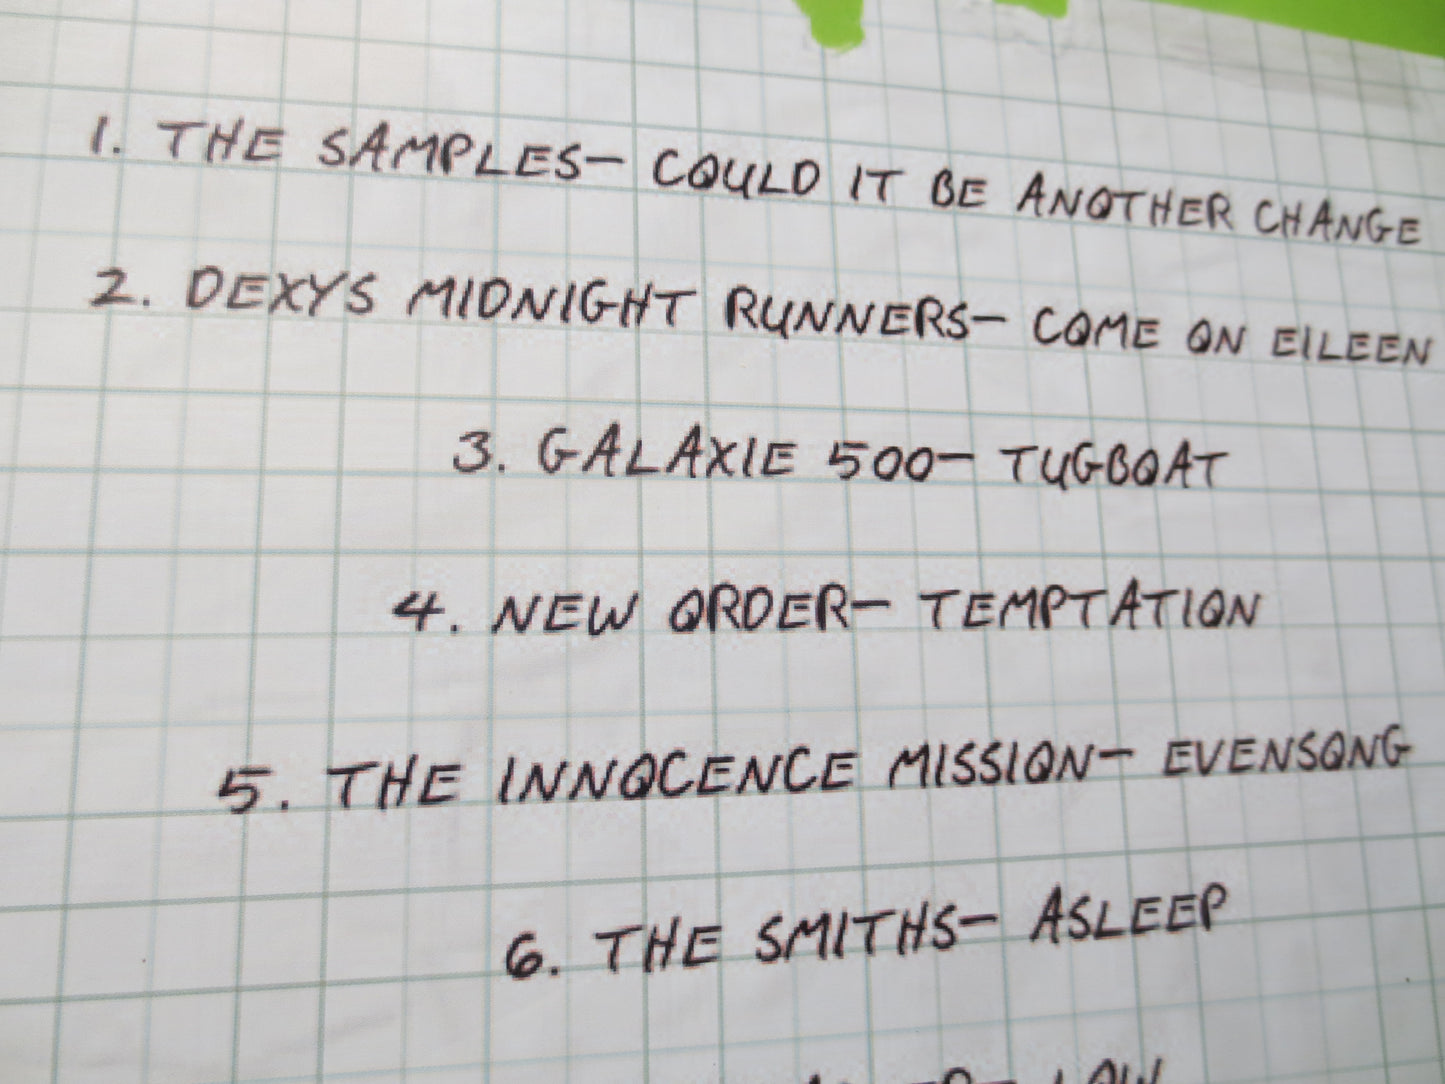 1. THE SAMPLES- COULD IT BE ANOTHER CHANGE
2. DEXYS MIDNIGHT RUNNERS- COME ON EILEEN
3. GALAXIE 500- TUGBOAT
4. NEW ORDER- TEMPTATION
5. THE INNOCENCE MISSION- EVENSONG
6. THE SMITHS- ASLEEP